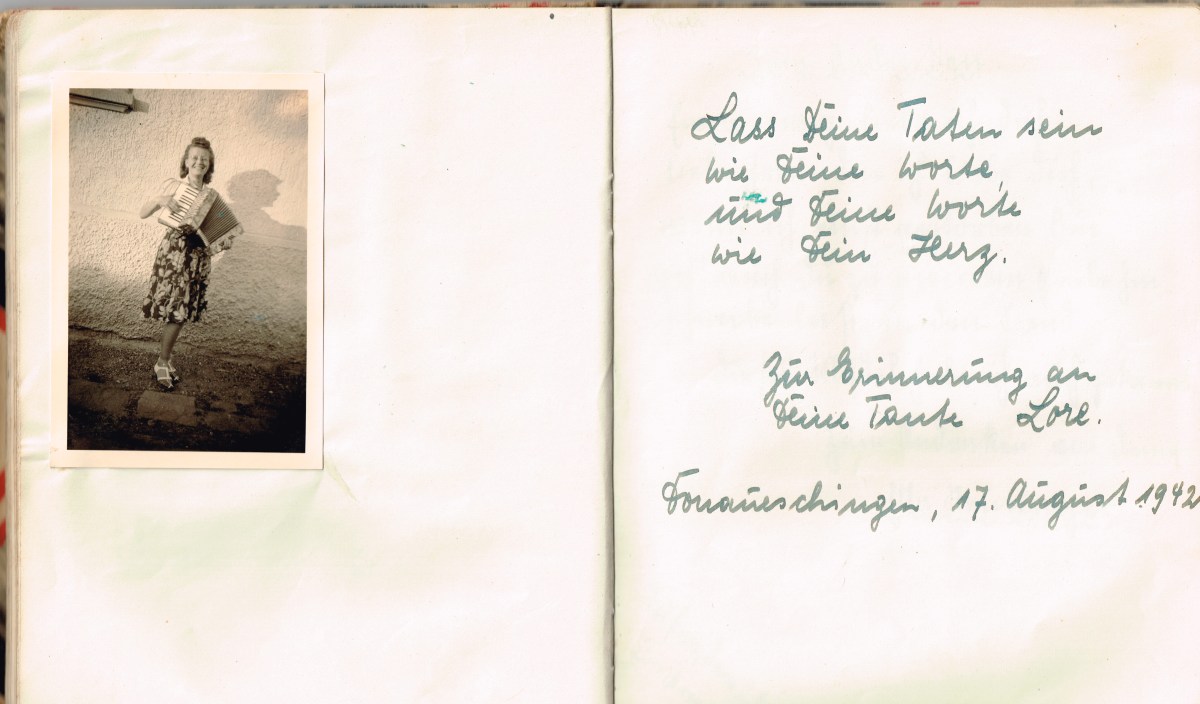 Lass Deine Taten sein
wie Deine Worte,
und Deine Worte
wie Dein Herz.
Zur Erinnerung an
Deine Tante Lore.
Donaueschingen, 17. August 1942